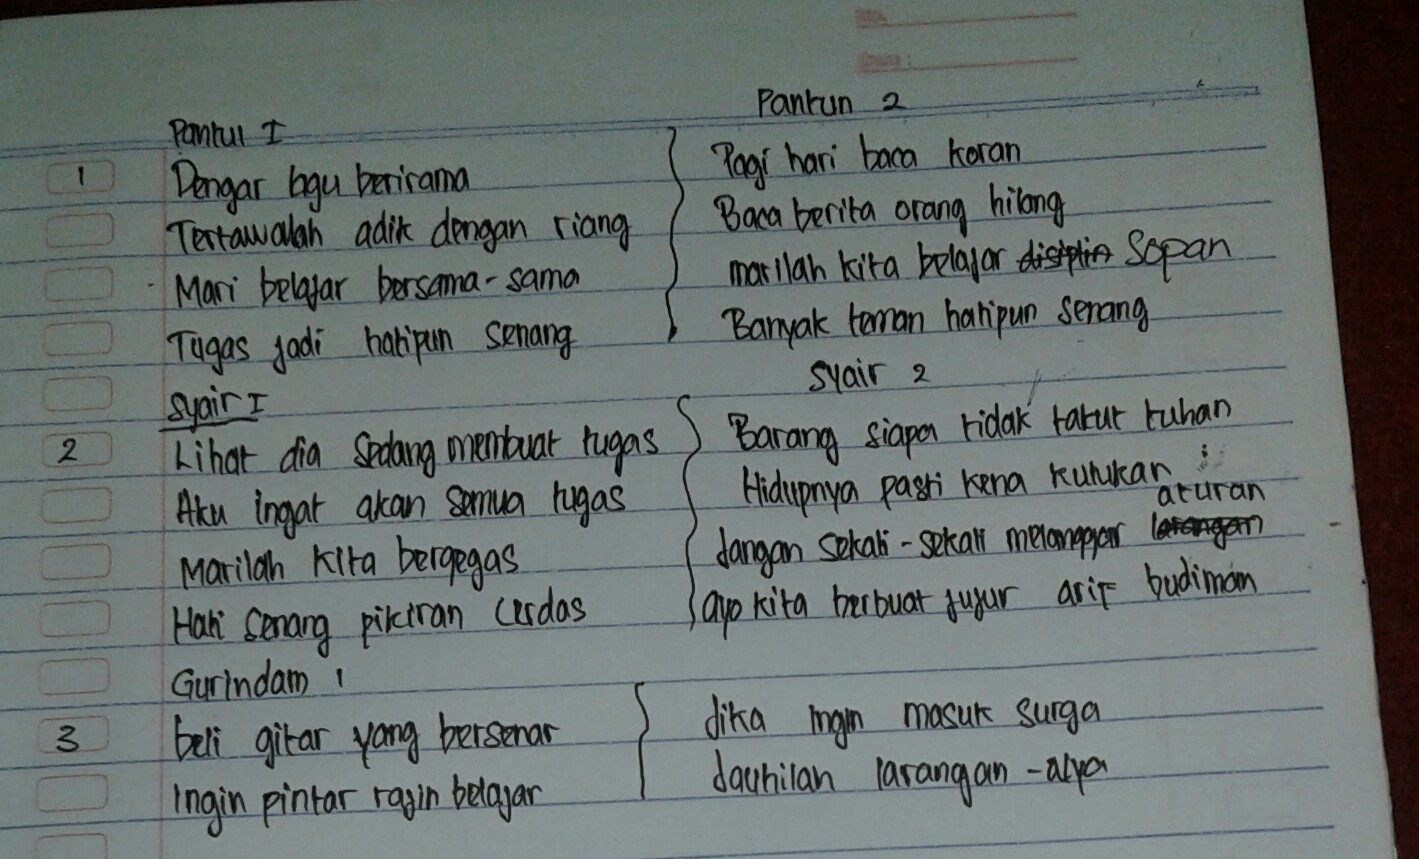 Pantul I
Dengar lagu berirama
Tertawalah adik dengan riang
Mari belajar bersama-sama
Tugas jadi hatipun senang
Pantun 2
Pagi hari baca koran
Baca berita orang hilang
marilah kita belajar disiplin Sopan
Banyak teman hatipun senang
Syair I
Lihat dia sedang membuat tugas
Aku ingat akan semua tugas
Marilah kita bergegas
Hati senang pikiran cerdas
Syair 2
Barang siapa tidak takut tuhan
Hidupnya pasti kena kutukan
aturan
Jangan sekali-sekali melanggar larangan
ayo kita berbuat jujur arif budiman
Gurindam 1
beli gitar yang bersenar
Ingin pintar rajin belajar
Jika ingin masuk surga
Jauhilah larangan-
1
2
3